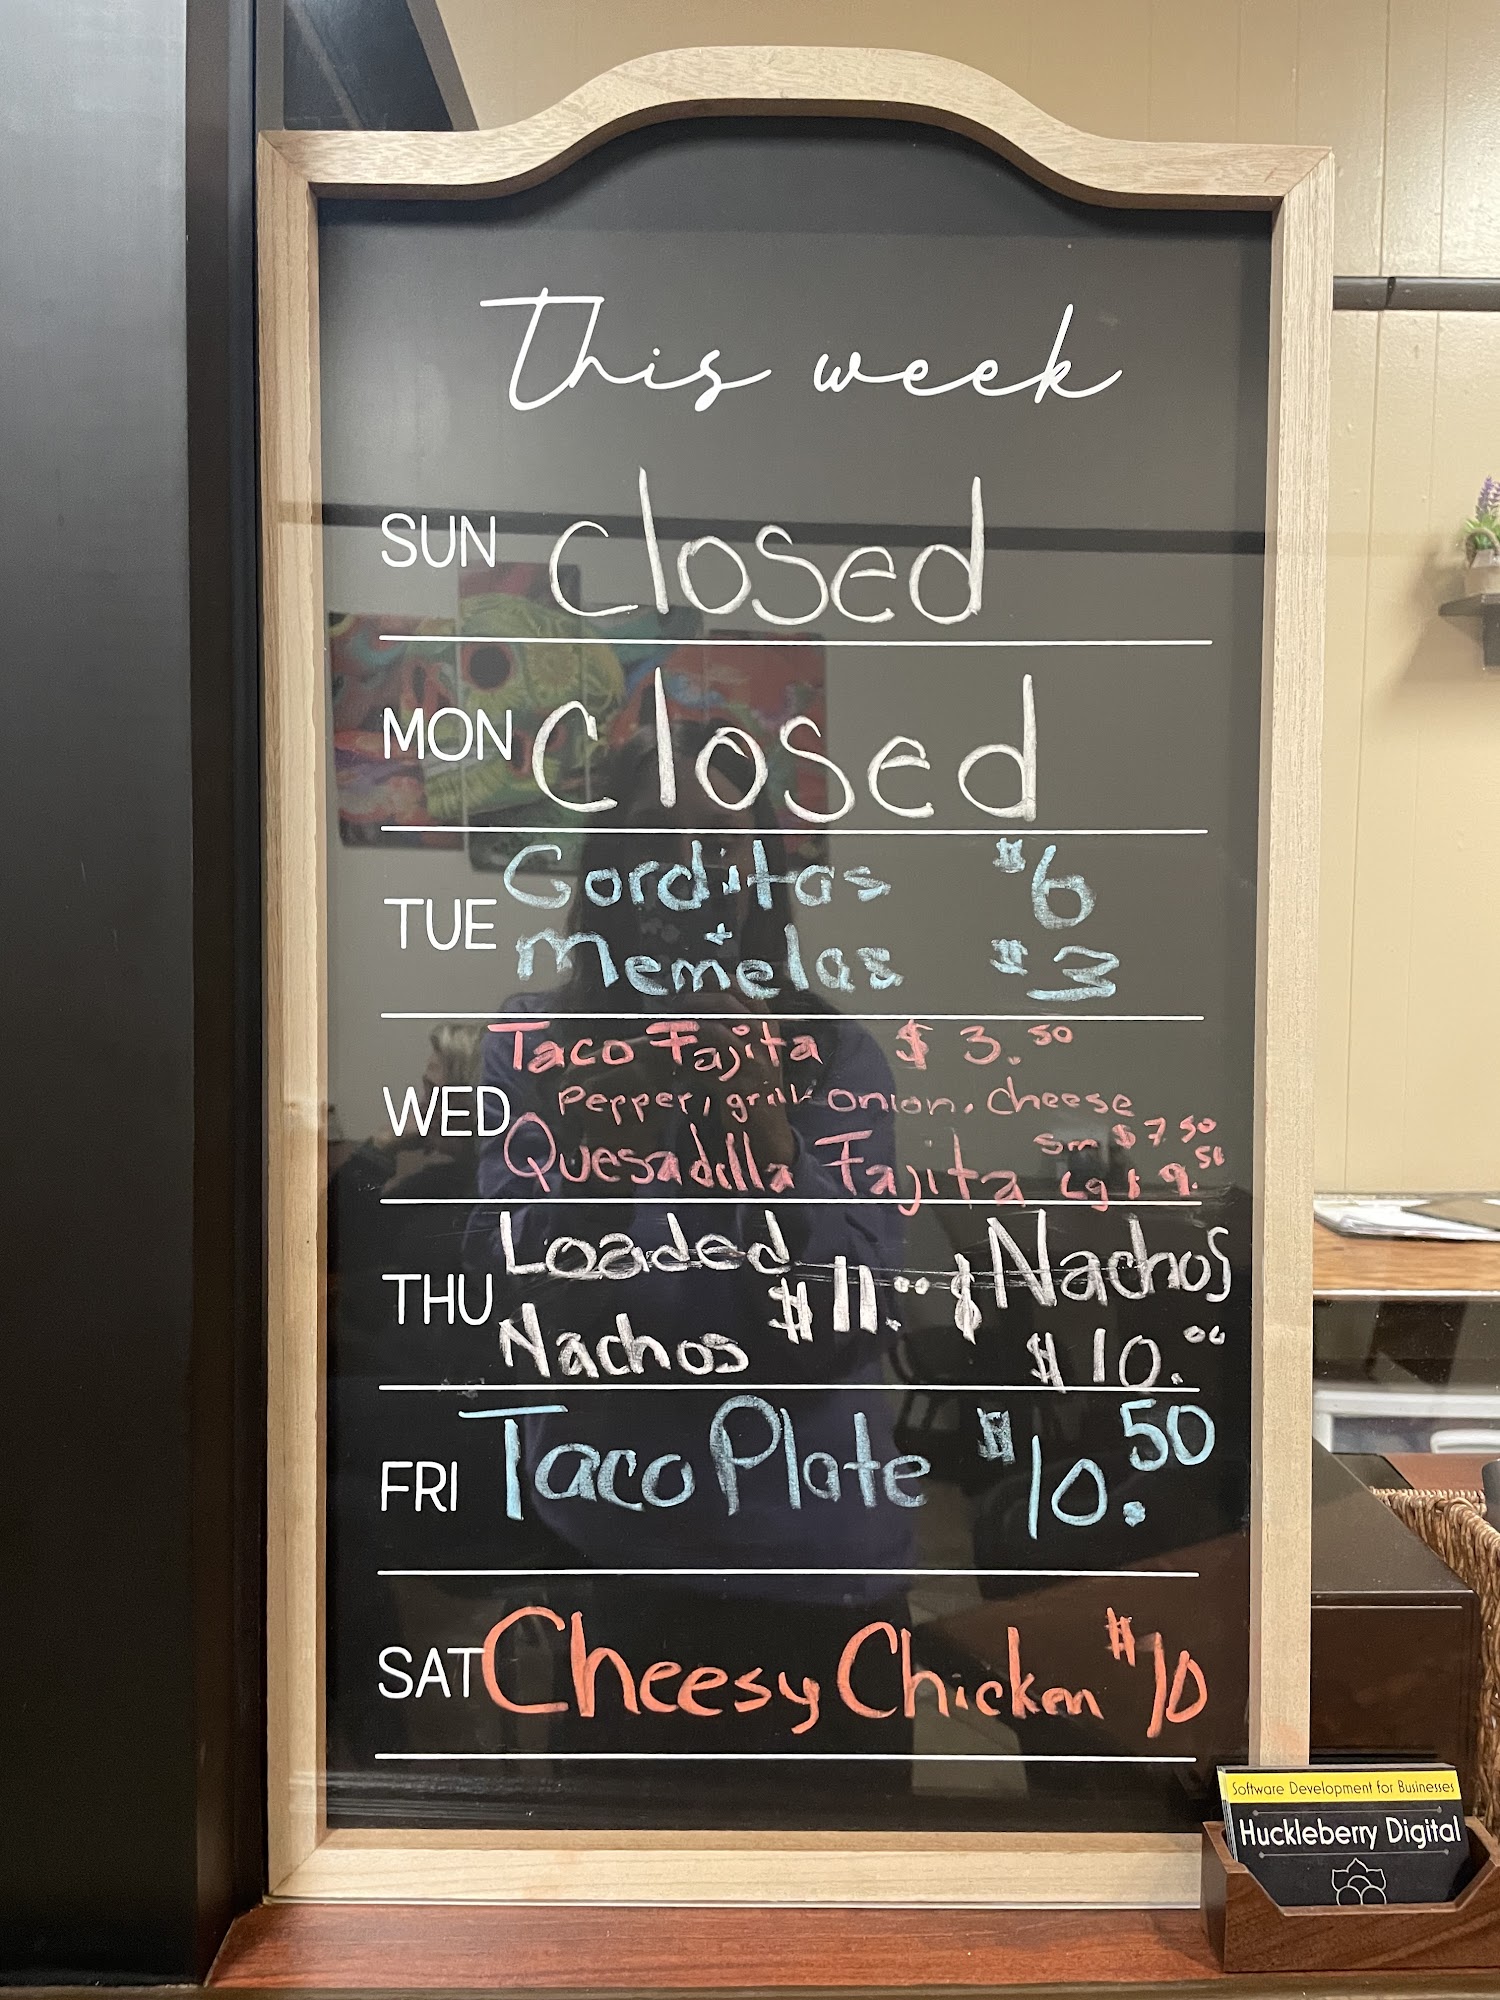 This week
SUN closed
MON closed
TUE Gorditas $6
+
Memelas $3
WED Taco Fajita $3.50
Pepper, grill onion, cheese
Quesadilla Fajita sm $7.50
Lg $9.50
THU Loaded Nachos $11.00 $ Nachos $10.00
FRI Taco Plate $10.50
SAT Cheesy Chicken $10
Software Development for Businesses
Huckleberry Digital